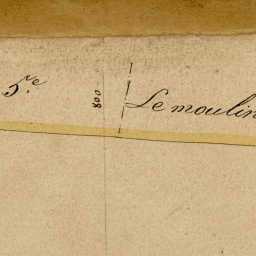 5.re
800
Le moulin